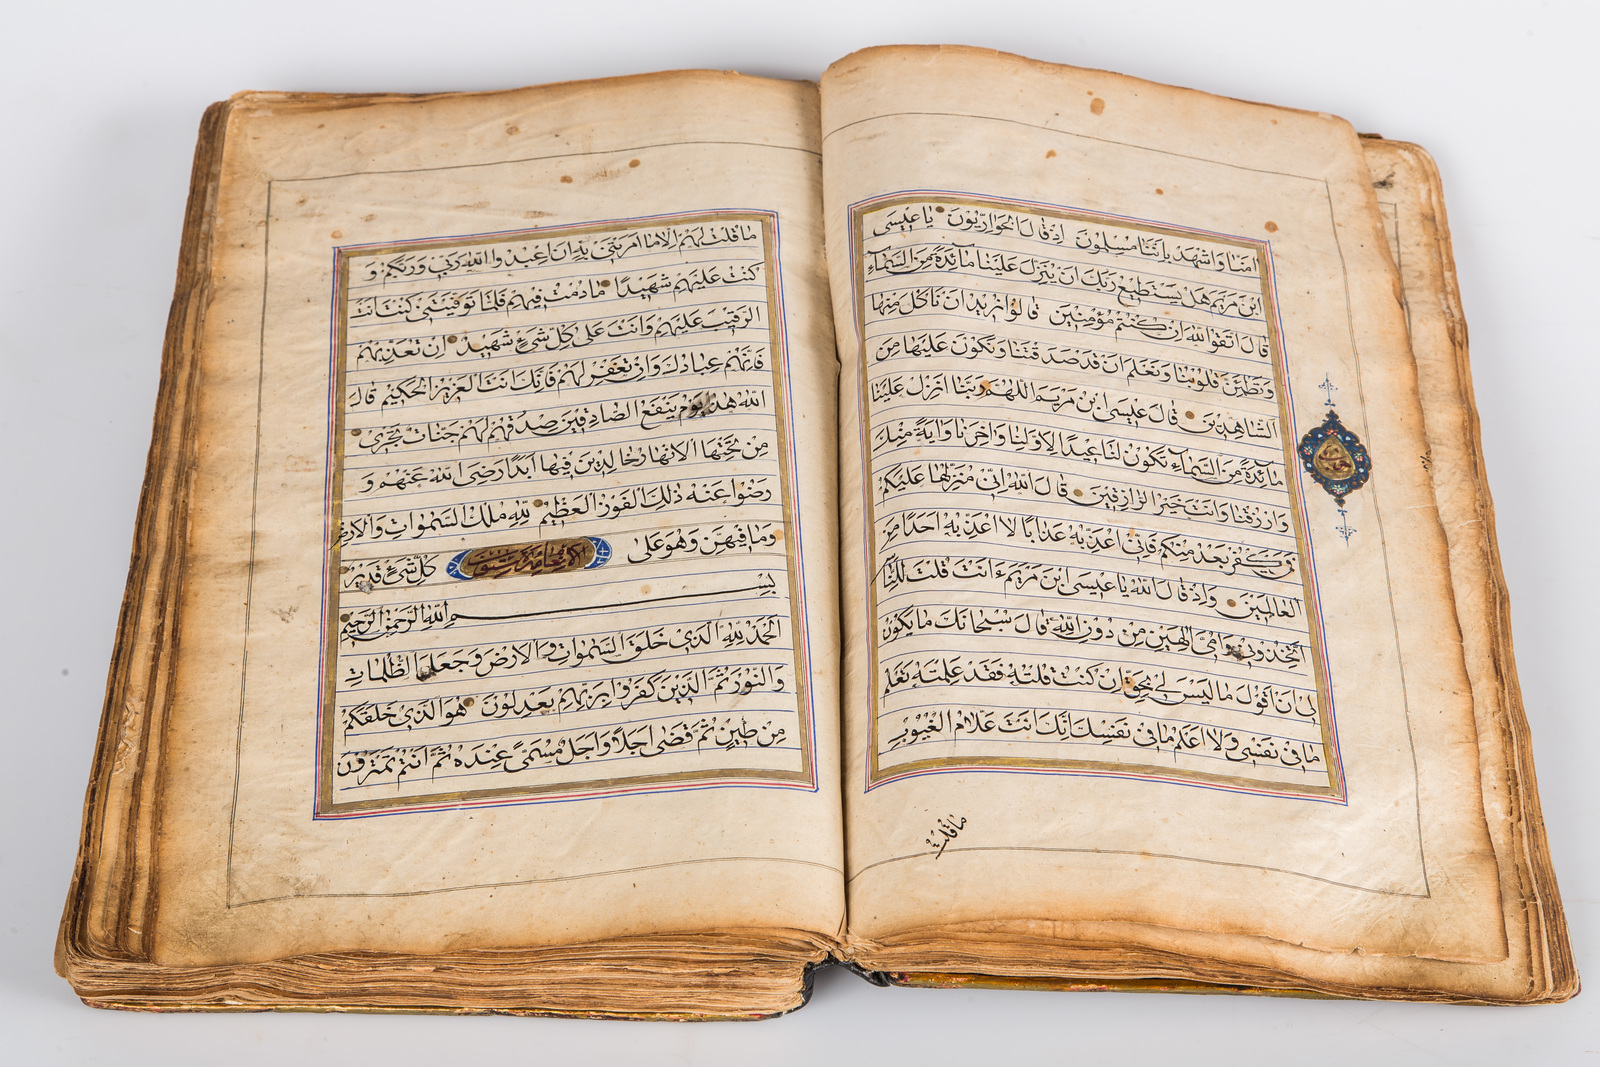 اٰمَنَّا وَاشْهَدْ بِاَنَّنَا مُسْلِمُونَ اِذْ قَالَ الْحَوَارِيُّونَ يَا عِيسَى
ابْنَ مَرْيَمَ هَلْ يَسْتَطِيعُ رَبُّكَ اَنْ يُنَزِّلَ عَلَيْنَا مَآئِدَةً مِنَ السَّمَآءِ
قَالَ اتَّقُوا اللّٰهَ اِنْ كُنْتُمْ مُؤْمِنِينَ قَالُوا نُرِيدُ اَنْ نَاْكُلَ مِنْهَا
وَتَطْمَئِنَّ قُلُوبُنَا وَنَعْلَمَ اَنْ قَدْ صَدَقْتَنَا وَنَكُونَ عَلَيْهَا مِنَ
الشَّاهِدِينَ قَالَ عِيسَى ابْنُ مَرْيَمَ اللّٰهُمَّ رَبَّنَا اَنْزِلْ عَلَيْنَا
مَآئِدَةً مِنَ السَّمَآءِ تَكُونُ لَنَا عِيدًا لِاَوَّلِنَا وَاٰخِرِنَا وَاٰيَةً مِنْكَ
وَارْزُقْنَا وَاَنْتَ خَيْرُ الرَّازِقِينَ قَالَ اللّٰهُ اِنِّي مُنَزِّلُهَا عَلَيْكُمْ
فَمَنْ يَكْفُرْ بَعْدُ مِنْكُمْ فَاِنِّي اُعَذِّبُهُ عَذَابًا لَا اُعَذِّبُهُ اَحَدًا مِنَ
الْعَالَمِينَ وَاِذْ قَالَ اللّٰهُ يَا عِيسَى ابْنَ مَرْيَمَ ءَاَنْتَ قُلْتَ لِلنَّاسِ
اتَّخِذُونِي وَاُمِّيَ اِلٰهَيْنِ مِنْ دُونِ اللّٰهِ قَالَ سُبْحَانَكَ مَا يَكُونُ
لِي اَنْ اَقُولَ مَا لَيْسَ لِي بِحَقٍّ اِنْ كُنْتُ قُلْتُهُ فَقَدْ عَلِمْتَهُ تَعْلَمُ
مَا فِي نَفْسِي وَلَا اَعْلَمُ مَا فِي نَفْسِكَ اِنَّكَ اَنْتَ عَلَّامُ الْغُيُوبِ
مَا قُلْتُ
مَا قُلْتُ لَهُمْ اِلَّا مَا اَمَرْتَنِي بِهِ اَنِ اعْبُدُوا اللّٰهَ رَبِّي وَرَبَّكُمْ وَ
كُنْتُ عَلَيْهِمْ شَهِيدًا مَا دُمْتُ فِيهِمْ فَلَمَّا تَوَفَّيْتَنِي كُنْتَ اَنْتَ
الرَّقِيبَ عَلَيْهِمْ وَاَنْتَ عَلَى كُلِّ شَيْءٍ شَهِيدٌ اِنْ تُعَذِّبْهُمْ
فَاِنَّهُمْ عِبَادُكَ وَاِنْ تَغْفِرْ لَهُمْ فَاِنَّكَ اَنْتَ الْعَزِيزُ الْحَكِيمُ قَالَ
اللّٰهُ هٰذَا يَوْمُ يَنْفَعُ الصَّادِقِينَ صِدْقُهُمْ لَهُمْ جَنَّاتٌ تَجْرِي
مِنْ تَحْتِهَا الْاَنْهَارُ خَالِدِينَ فِيهَا اَبَدًا رَضِيَ اللّٰهُ عَنْهُمْ وَ
رَضُوا عَنْهُ ذٰلِكَ الْفَوْزُ الْعَظِيمُ لِلّٰهِ مُلْكُ السَّمٰوَاتِ وَالْاَرْضِ
وَمَا فِيهِنَّ وَهُوَ عَلَى كُلِّ شَيْءٍ قَدِيرٌ
بِسْمِ اللّٰهِ الرَّحْمٰنِ الرَّحِيمِ
اَلْحَمْدُ لِلّٰهِ الَّذِي خَلَقَ السَّمٰوَاتِ وَالْاَرْضَ وَجَعَلَ الظُّلُمَاتِ
وَالنُّورَ ثُمَّ الَّذِينَ كَفَرُوا بِرَبِّهِمْ يَعْدِلُونَ هُوَ الَّذِي خَلَقَكُمْ
مِنْ طِينٍ ثُمَّ قَضَى اَجَلًا وَاَجَلٌ مُسَمًّى عِنْدَهُ ثُمَّ اَنْتُمْ تَمْتَرُونَ